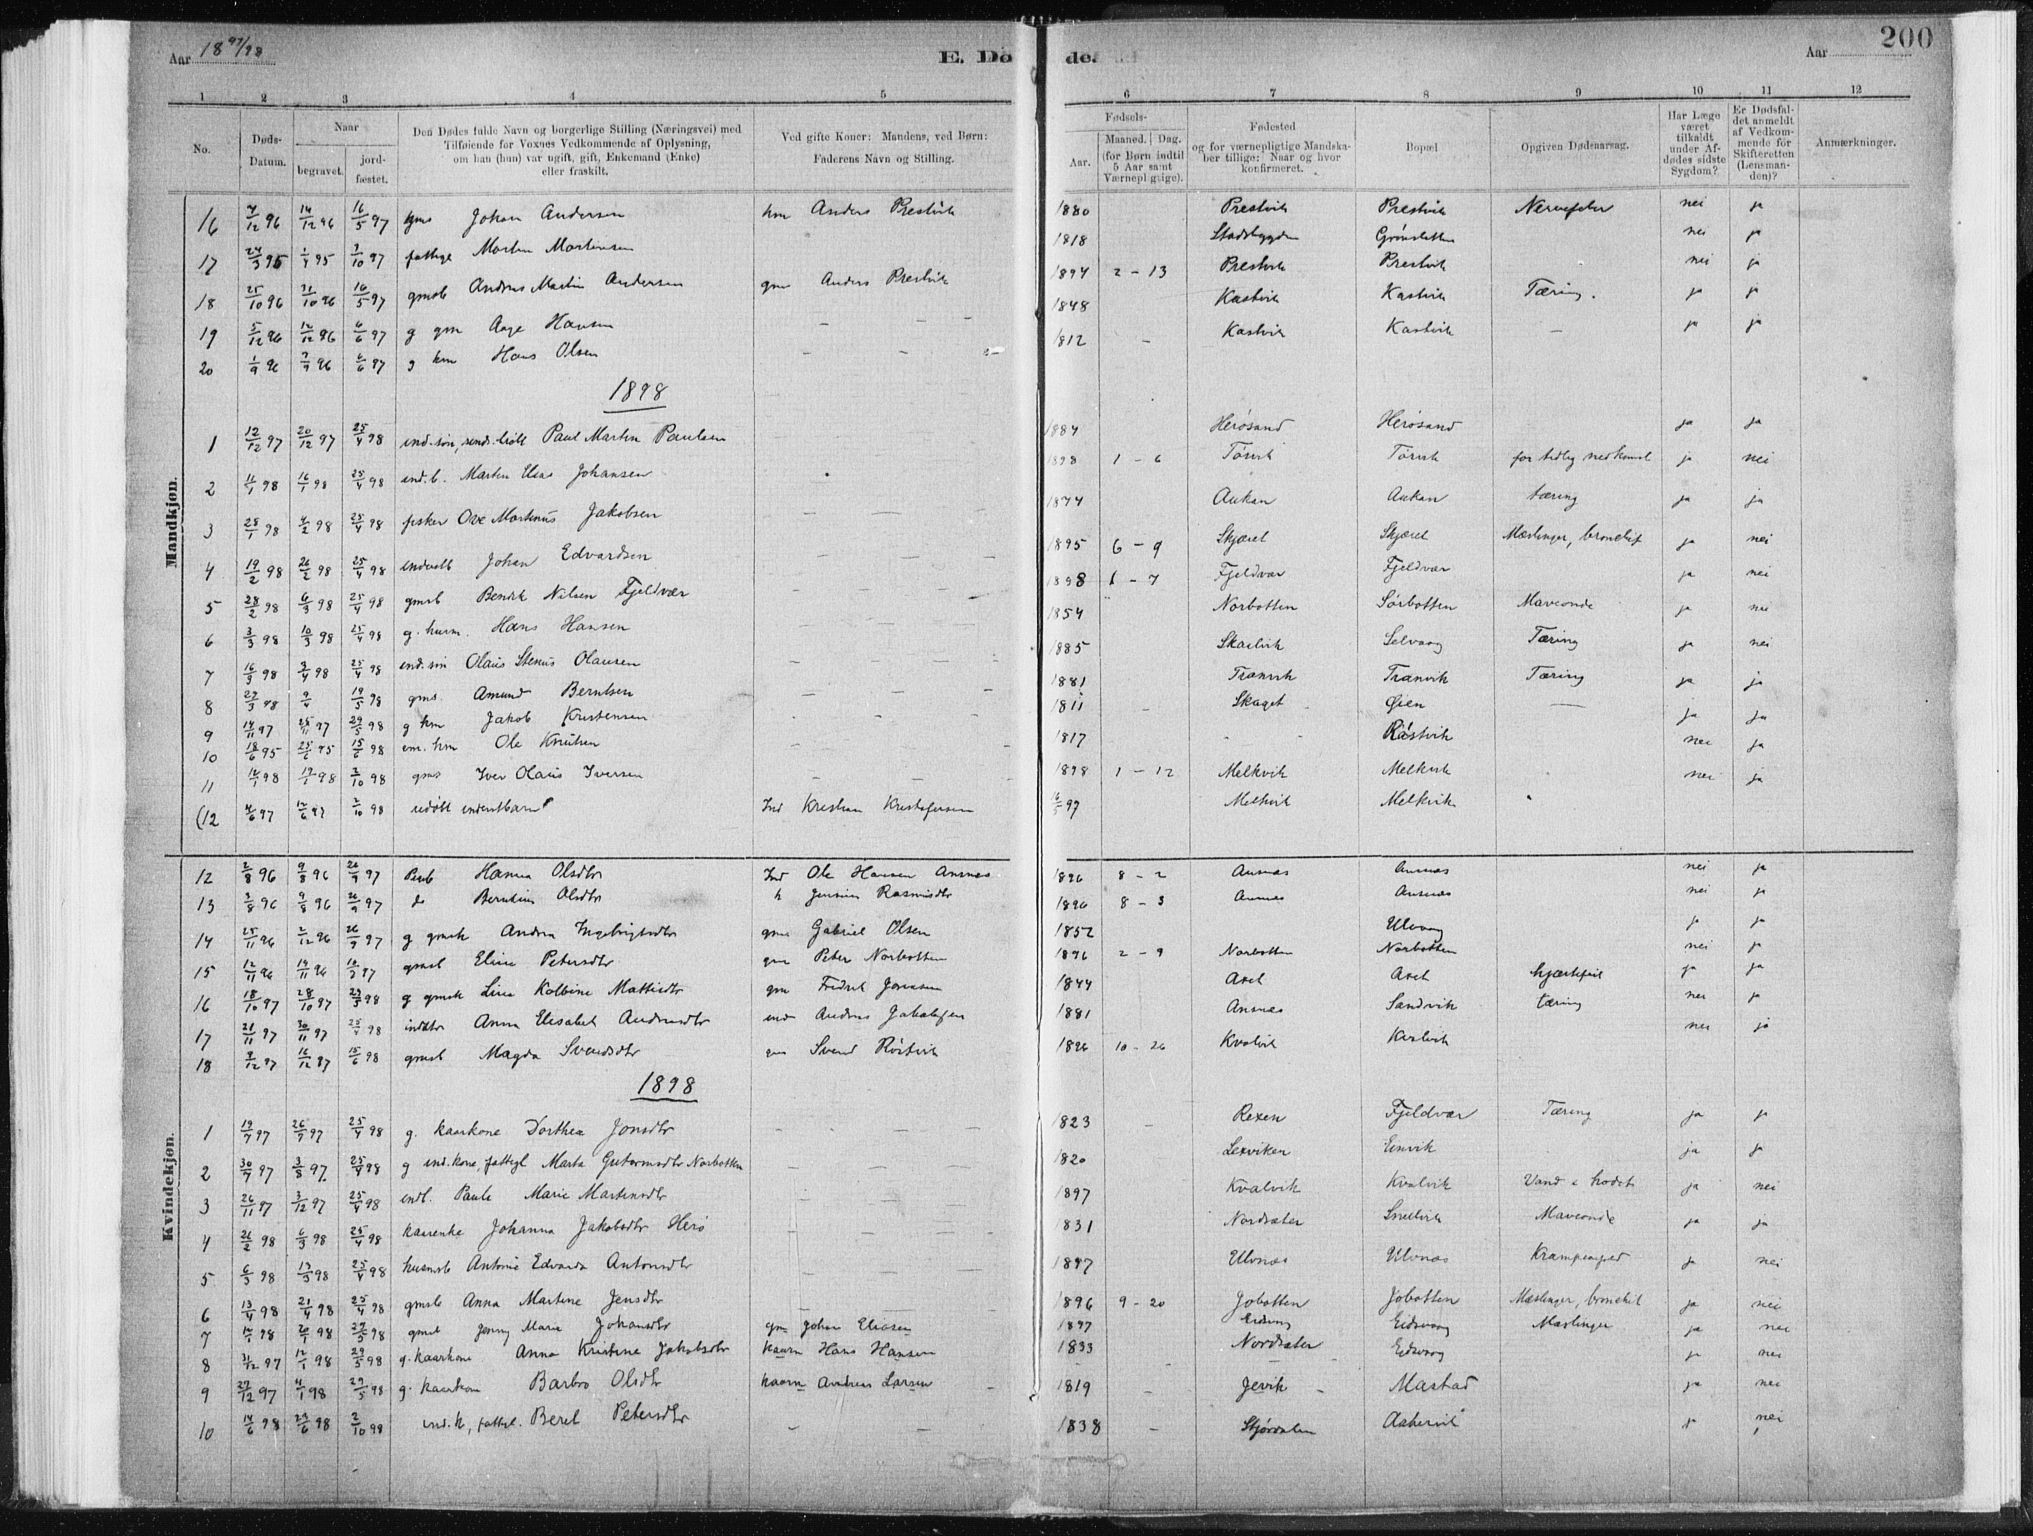 Aar 18 97/98
E. Dø
de.
Aar
200
1 2 3 4 5 6 7 8 9 10 11 12
No.
Døds-Datum.
Naar
begravet.
jord-fæstet.
Den Dødes fulde Navn og borgerlige Stilling (Næringsvei) med
Tilføiende for Voxnes Vedkommende af Oplysning,
om han (hun) var ugift, gift, Enkemand (Enke)
eller fraskilt.
Ved gifte Koner: Mandens, ved Børn:
Faderens Navn og Stilling.
Fødsels-
Aar.
Maaned. Dag.
(for Børn indtil
5 Aar samt
Værnepligtige).
Fødested
og for værnepligtige Mandska-
ber tillige: Naar og hvor
konfirmeret.
Bopæl
Opgiven Dødsaarsag.
Har Læge
været
tilkaldt
under Af-
dødes sidste
Sygdom?
Er Dødsfal-
det anmeldt
af Vedkom-
mende for
Skifteretten
(Lensman-
den)?
Anmærkninger.
Mandkjøn.
16 7/12 96 14/12 96 16/5 97 gms Johan Andersen hm Anders Prestvik 1880 Prestvik Prestvik Nervefeber nei ja
17 24/3 95 1/4 95 3/10 97 fattige Morten Mortensen 1818 Stadsbygden Grønsletten nei ja
18 25/10 96 31/10 96 16/5 97 gmsb Andreas Martin Andersen gm Anders Prestvik 1894 2 - 13 Prestvik Prestvik nei ja
19 5/12 96 12/12 96 6/6 97 g gm Aage Hansen 1848 Kastvik Kastvik Tæring. ja ja
20 1/9 96 7/9 96 6/6 97 g hm Hans Olsen 1812 Kastvik Kastvik ja ja
1898
1 12/12 97 20/12 97 25/4 98 ind. søn, Paul Martin Paulsen 1884 Herøsund Herøsund ja ja
2 11/1 98 16/1 98 25/4 98 ind. b. Morten Elias Johansen 1898 1 - 6 Tørvik Tørvik for tidlig nedkomst ja nei
3 28/1 98 4/2 98 25/4 98 fisker Ove Martinus Jakobsen 1874 Aukan Aukan tæring ja ja
4 19/2 98 26/2 98 25/4 98 Johan Edvardsen 1895 6 - 9 Skjæret Skjæret Mæslinger, bronchit ja nei
5 28/2 98 6/3 98 25/4 98 gmsb Bendik Nilsen Fjeldvær 1898 1 - 7 Fjeldvær Fjeldvær ja nei
6 3/3 98 10/3 98 25/4 98 g. husm. Hans Hansen 1854 Norbotten Sørbotten Maveonde ja nei
7 16/3 98 3/4 98 25/4 98 ind. søn Olaus Stenus Olausen 1885 Skarvik Selvaag Tæring ja nei
8 27/3 98 9/4 19/5 98 gms. Amund Berntsen 1881 Tranvik Tranvik Tæring ja ja
9 14/11 97 25/11 97 29/5 98 g hm Jakob Kristensen 1811 Skaget Øien ja ja
10 18/6 95 25/6 95 15/6 98 em. hm Ole Knutsen 1817 Røstvik nei ja
11 98 98 2/10 98 gms Iver Olaus Iversen 1898 1 - 12 Melkvik Melkvik nei ja
(12 4/6 97 12/6 97 2/10 98 udøbt Ind Kristian Kristofersen 16/5 97 Melkvik Melkvik
Kvindekjøn.
12 2/8 96 9/8 96 26/9 97 Hanna Olsdtr Ind Ole Hansen Ansnæs 1896 8 - 2 Ansnæs Ansnæs nei ja
13 3/8 96 9/8 96 26/9 97 do Berntine Olsdtr Jensius Rasmusdtr 1896 8 - 3 Ansnæs Ansnæs nei ja
14 25/11 96 2/12 96 26/9 97 g gmsk Andrea Ingebrigtsdtr gm Gabriel Olsen 1852 Ulvaag ja ja
15 12/11 96 19/11 96 97 gmsb Eline Petersdtr gm Peter Norbotten 1896 2 - 9 Norbotten Norbotten nei ja
16 18/10 97 28/10 97 29/5 98 g gmsk Lina Kolbine Mattisdtr gm Fredrik Jonassen 1844 Axet Axet hjærtefeil ja ja
17 21/11 97 30/11 97 25/4 98 inddtr Anna Elisabet Andreasdtr ind Andreas Jakobsen 1881 Ansnæs Sandvik tæring nei ja
18 9/12 97 16/12 97 15/6 98 gmsb Magda Svendsdtr gm Svend Røstvik 1896 10 - 26 Kvalvik Kvalvik nei ja
1898
1 19/7 97 26/7 97 25/4 98 g. kaarkone Dorthea Jonsdtr 1823 Rexen Fjeldvær Tæring ja ja
2 30/7 97 3/8 97. 25/4 98 g ind. kone, fattigl Marta Gutormsdtr Norbotten 1820 Lexviken Einvik ja ja
3 26/11 97 3/12 97 25/4 98 indl. Paule Marie Martinsdtr 1897 Kvalvik Kvalvik Vand i hodet ja nei
4 26/2 98 6/3 98 25/4 98 kaarenke Johanna Jakobsdtr Herø 1831 Nordsæter Snelvik Maveonde ja ja
5 6/3 98 13/3 98 25/4 98 husmsb Antonie Edvarda Antonsdtr 1897 Ulvnæs Ulvnæs ja nei
6 13/4 98 21/4 98 25/4 98 gmsb Anna Martine Jensdtr 1896 9 - 20 Jobotten Jobotten Mæslinger, bronchit ja nei
7 98 98 29/5 98 gmsb Jenny Marie Johansdtr gm Johan Eliasen 1897 Eidsvaag Eidsvaag Mæslinger ja nei
8 31/12 97 12/1 98 29/5 98 g. kaarkone Anna Kristine Jakobsdtr kaarm Hans Hansen 1833 Nordsæter Eidsvaag ja nei
9 27/12 97 4/1 98 29/5 98 g. kaarkone Barbro Olsdtr kaarm Andreas Larsen 1819 Jevik Mastad ja nei
10 14/6 98 24/6 98 2/10 98 ind. k, fattigl. Beret Petersdtr 1838 Stjørdalen Aakervik ja nei